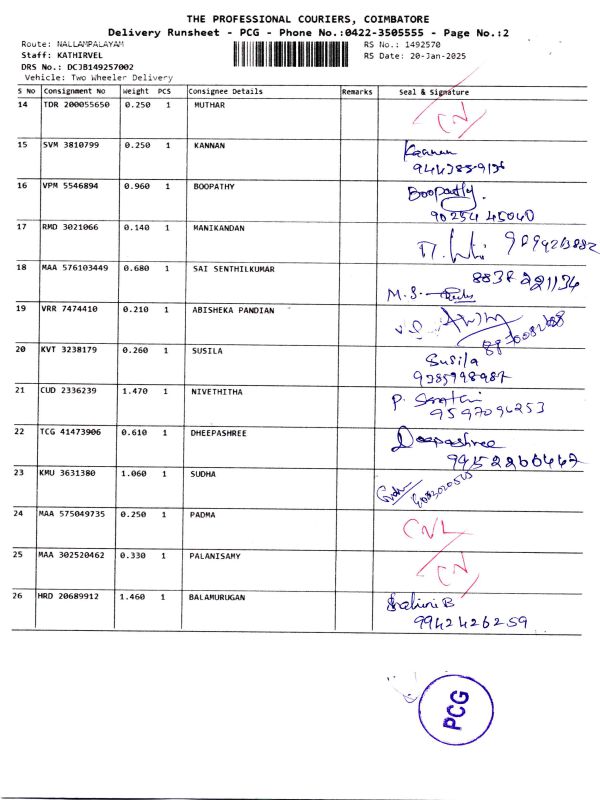 THE PROFESSIONAL COURIERS, COIMBATORE
Delivery Runsheet - PCG - Phone No.:0422-3505555 - Page No.:2
Route: NALLAMPALAYAM RS No.: 1492570
Staff: KATHIRVEL RS Date: 20-Jan-2025
DRS No.: DCJB149257002
Vehicle: Two Wheeler Delivery
S No Consignment No Weight PCS Consignee Details Remarks Seal & Signature
14 TDR 200055650 0.250 1 MUTHAR CN
15 SVM 3810799 0.250 1 KANNAN Kannan
16 VPM 5546894 0.960 1 BOOPATHY Boopathy.
90254 45040
17 RMD 3021066 0.140 1 MANIKANDAN
18 MAA 576103449 0.680 1 SAI SENTHILKUMAR 8838221134
M.S.
19 VRR 7474410 0.210 1 ABISHEKA PANDIAN
20 KVT 3238179 0.260 1 SUSILA Susila
9385998987
21 CUD 2336239 1.470 1 NIVETHITHA P.
9597094253
22 TCG 41473906 0.610 1 DHEEPASHREE Deepashree
23 KMU 3631380 1.060 1 SUDHA
24 MAA 575049735 0.250 1 PADMA CNL
25 MAA 302520462 0.330 1 PALANISAMY CN
26 HRD 20689912 1.460 1 BALAMURUGAN Shalini B
9942426259
PCG